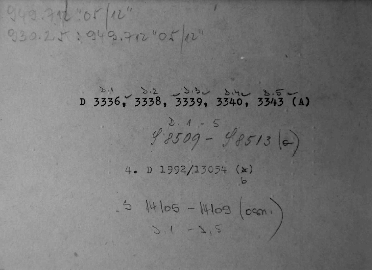 949.712"05/12"
930.25:949.712"05/12"
D.1 D.2 D.3 D.4 D.5
D 3336, 3338, 3339, 3340, 3343 (A)
D. 1 - 5
S 8509 - S 8513 (c)
4. D 1992/13054 (a)
b
S 14105 - 14109 (osn.)
D 1 - D, 5